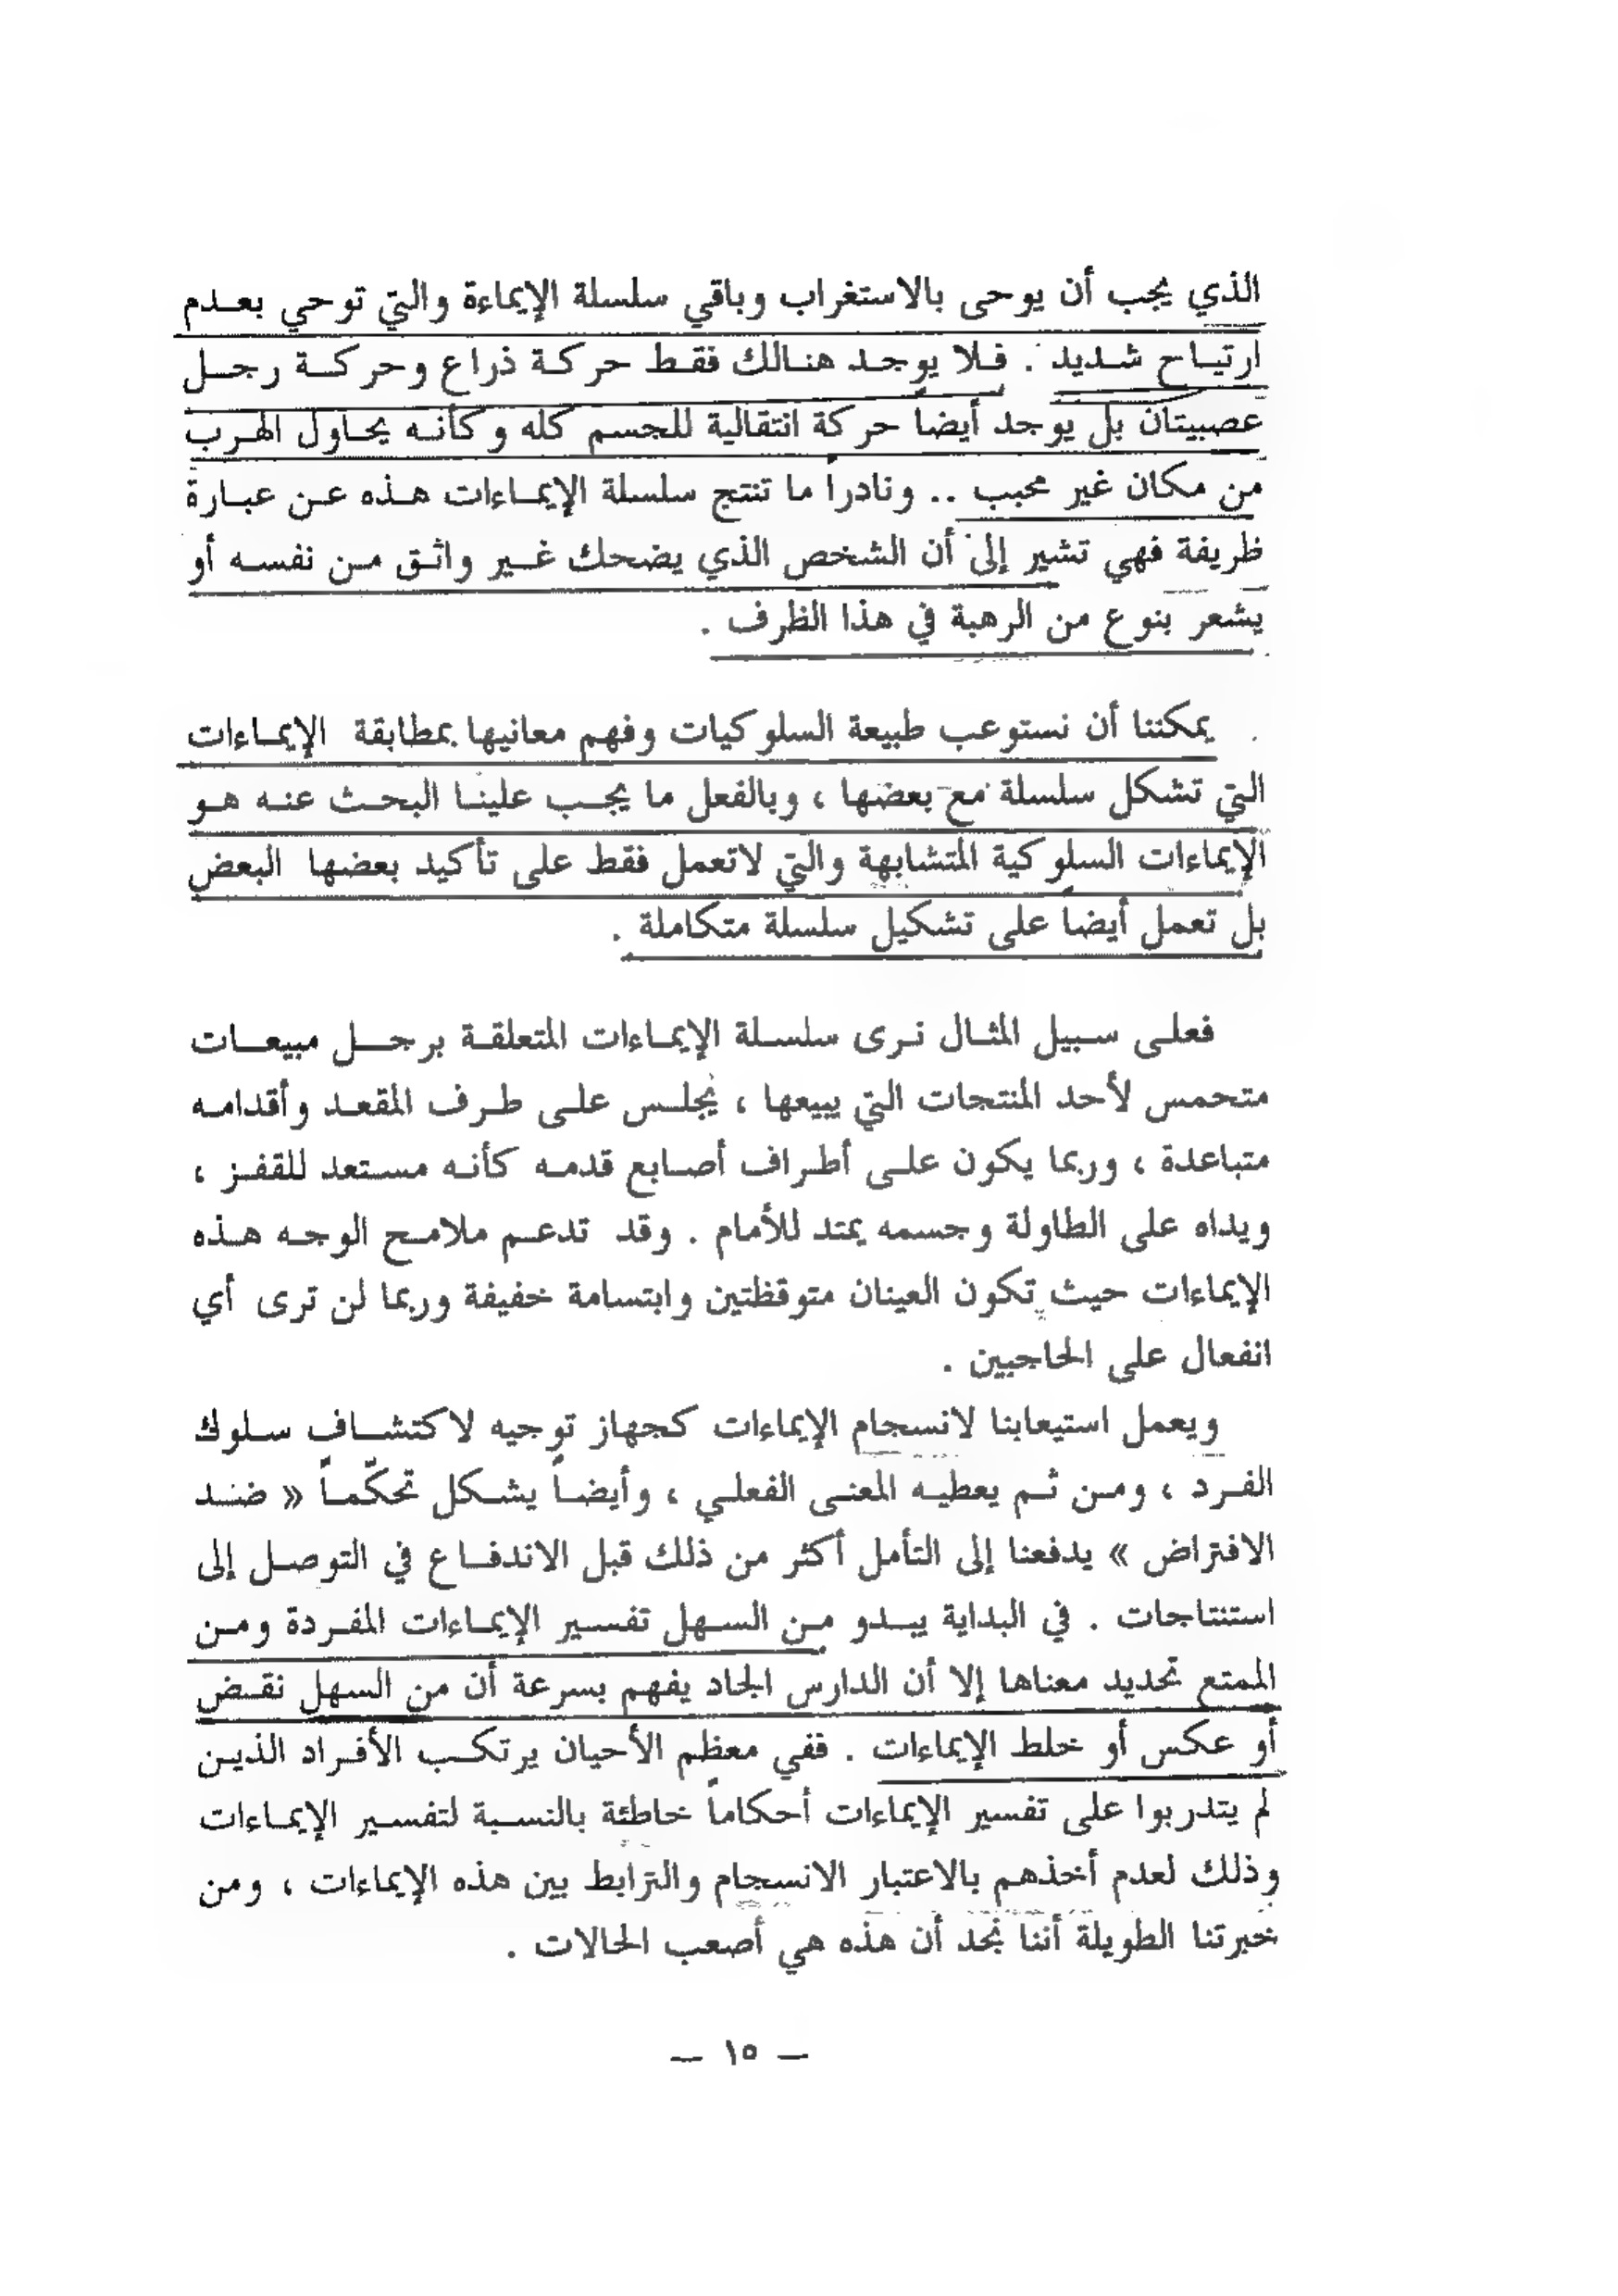 الذي يجب أن يوحى بالاستغراب وباقي سلسلة الإيماءة والتي توحي بعدم
ارتياح شديد . فلا يوجد هنالك فقط حركة ذراع وحركة رجل
عصبيتان بل يوجد أيضاً حركة انتقالية للجسم كله وكأنه يحاول الهرب
من مكان غير محبب .. ونادراً ما تنتج سلسلة الإيماءات هذه عن عبارة
ظريفة فهي تشير إلى أن الشخص الذي يضحك غير واثق من نفسه أو
يشعر بنوع من الرهبة في هذا الظرف .
يمكننا أن نستوعب طبيعة السلوكيات وفهم معانيها بمطابقة الإيماءات
التي تشكل سلسلة مع بعضها ، وبالفعل ما يجب علينا البحث عنه هو
الإيماءات السلوكية المتشابهة والتي لاتعمل فقط على تأكيد بعضها البعض
بل تعمل أيضاً على تشكيل سلسلة متكاملة .
فعلى سبيل المثال نرى سلسلة الإيماءات المتعلقة برجل مبيعات
متحمس لأحد المنتجات التي يبيعها ، يجلس على طرف المقعد وأقدامه
متباعدة ، وربما يكون على أطراف أصابع قدمه كأنه مستعد للقفز ،
ويداه على الطاولة وجسمه يمتد للأمام . وقد تدعم ملامح الوجه هذه
الإيماءات حيث تكون العينان متوقظتين وابتسامة خفيفة وربما لن ترى أي
انفعال على الحاجبين .
ويعمل استيعابنا لانسجام الإيماءات كجهاز توجيه لاكتشاف سلوك
الفرد ، ومن ثم يعطيه المعنى الفعلي ، وأيضاً يشكل تحكّماً « ضد
الافتراض » يدفعنا إلى التأمل أكثر من ذلك قبل الاندفاع في التوصل إلى
استنتاجات . في البداية يبدو من السهل تفسير الإيماءات المفردة ومن
الممتع تحديد معناها إلا أن الدارس الجاد يفهم بسرعة أن من السهل نقض
أو عكس أو خلط الإيماءات . ففي معظم الأحيان يرتكب الأفراد الذين
لم يتدربوا على تفسير الإيماءات أحكاماً خاطئة بالنسبة لتفسير الإيماءات
وذلك لعدم أخذهم بالاعتبار الانسجام والترابط بين هذه الإيماءات ، ومن
خبرتنا الطويلة أننا نجد أن هذه هي أصعب الحالات .
— ١٥ —